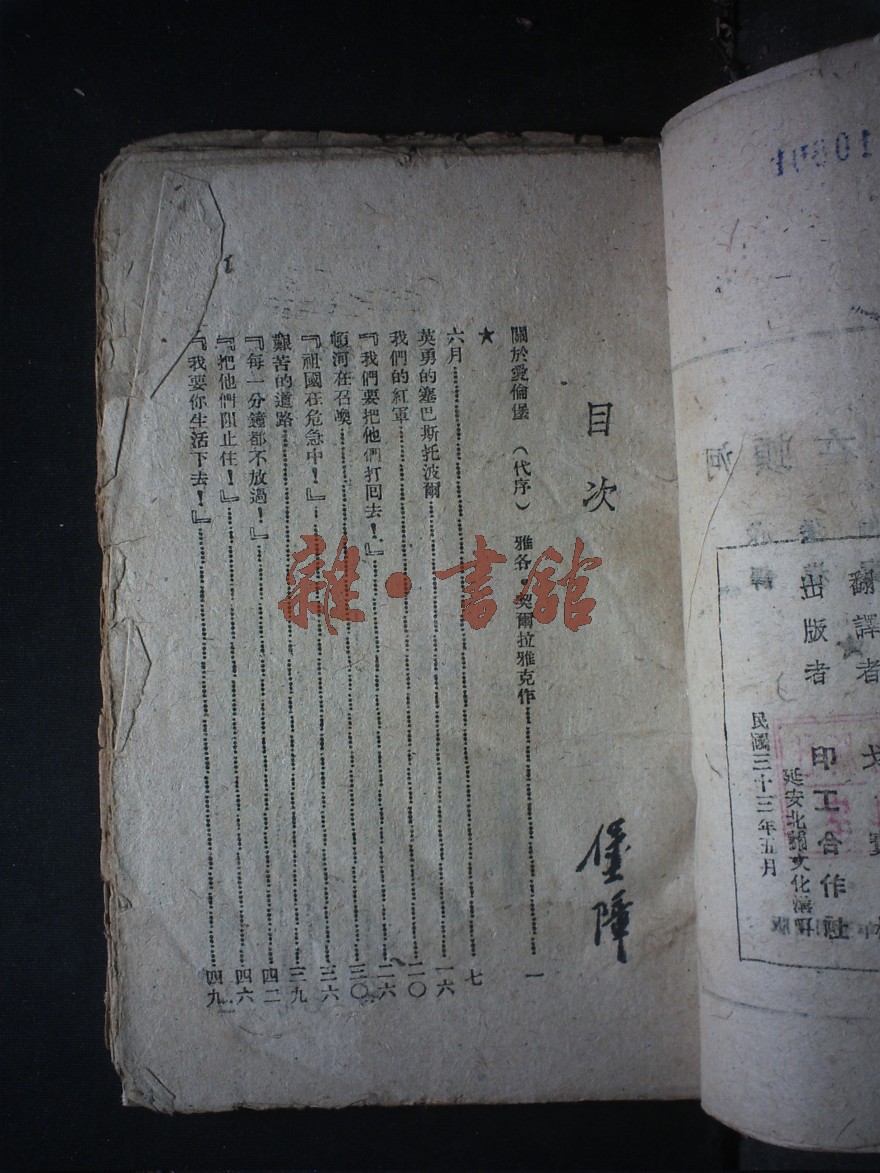 目次
關於愛倫堡 (代序) 雅各·契爾拉雅克作……一
★
六月……七
英勇的塞巴斯托波爾……一六
我們的紅軍……二〇
『我們要把他們打回去!』……二六
頓河在召喚……三〇
『祖國在危急中!』……三六
艱苦的道路……三九
『每一分鐘都不放過!』……四二
『把他們阻止住!』……四六
『我要你生活下去!』……四九
堡障
雜·書館
翻譯者
出版者 印工合作社
延安北
民國三十三年五月